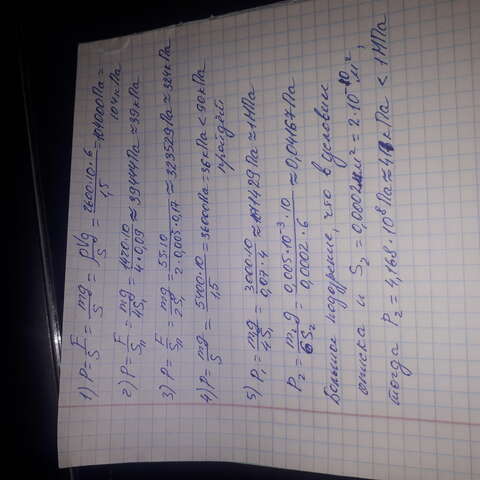 1) P = F/S = mg/S = ρVg/S = 2600·10·6/1,5 = 104000 Па =
104 кПа
2) P = F/Sп = mg/4S₁ = 1420·10/4·0,09 ≈ 39444 Па ≈ 39 кПа
3) P = F/Sп = mg/2S₁ = 55·10/2·0,005·0,17 ≈ 323529 Па ≈ 324 кПа
4) P = mg/S = 5400·10/1,5 = 36000 Па = 36 кПа < 90 кПа
пройдёт
5) P₁ = m₁g/4S₁ = 3000·10/0,07·4 ≈ 11429 Па ≈ 1 МПа
P₂ = m₂g/6S₂ = 0,005·10⁻³·10/0,0002·6 ≈ 0,04167 Па
Большое подозрение, что в условии
описка и S₂ = 0,0002 м² = 2·10⁻¹⁰ м²,
тогда P₂ = 4,168·10⁸ Па ≈ 41 кПа < 1 МПа